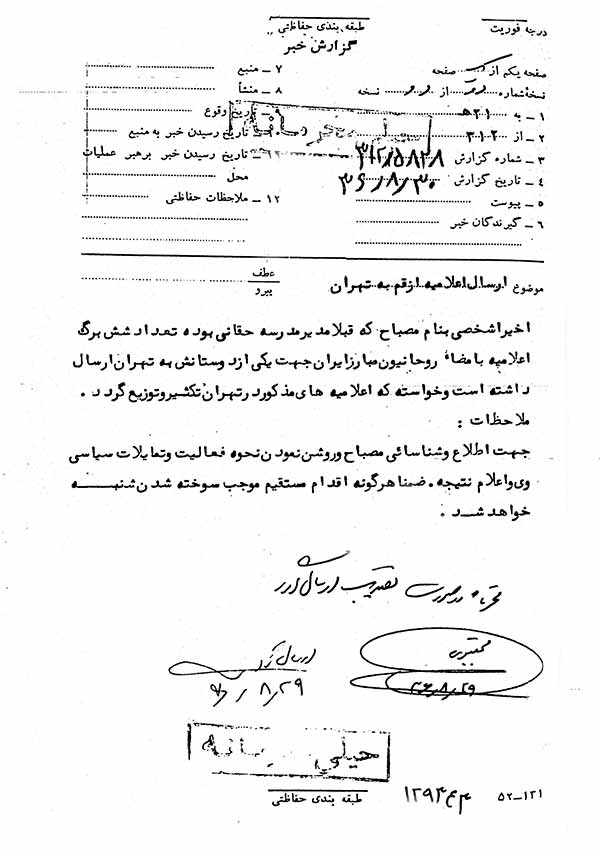 درجه فوریت
طبقه بندی حفاظتی
گزارش خبر
صفحه یکم از یک صفحه
نسخه شماره از نسخه
۱ – به ۵۲۱
۲ – از ۳۱۲
۳ – شماره گزارش ۳۱۲/۵۸۲۸
۴ – تاریخ گزارش ۳۶/۸/۳۰
۵ – پیوست
۶ – گیرندگان خبر
۷ – منبع
۸ – منشأ
۹ – تاریخ وقوع
۱۰ – تاریخ رسیدن خبر به منبع
۱۱ – تاریخ رسیدن خبر برهبر عملیات
محل
۱۲ – ملاحظات حفاظتی
موضوع ارسال اعلامیه ازقم به تهران
عطف
پیرو
اخیرا شخصی بنام مصباح که قبلا مدیر مدرسه حقانی بوده تعداد شش برگ
اعلامیه با مضاء روحانیون مبارز ایران جهت یکی از دوستانش به تهران ارسال
داشته است و خواسته که اعلامیه های مذکور در تهران تکثیر و توزیع گردد .
ملاحظات :
جهت اطلاع و شناسائی مصباح و روشن نمودن نحوه فعالیت و تمایلات سیاسی
وی و اعلام نتیجه . ضمنا هرگونه اقدام مستقیم موجب سوخته شدن شنبه
خواهد شد .
ارسال گردد
۳۶/۸/۲۹
خیلی محرمانه
طبقه بندی حفاظتی
۵۲–۱۲۱